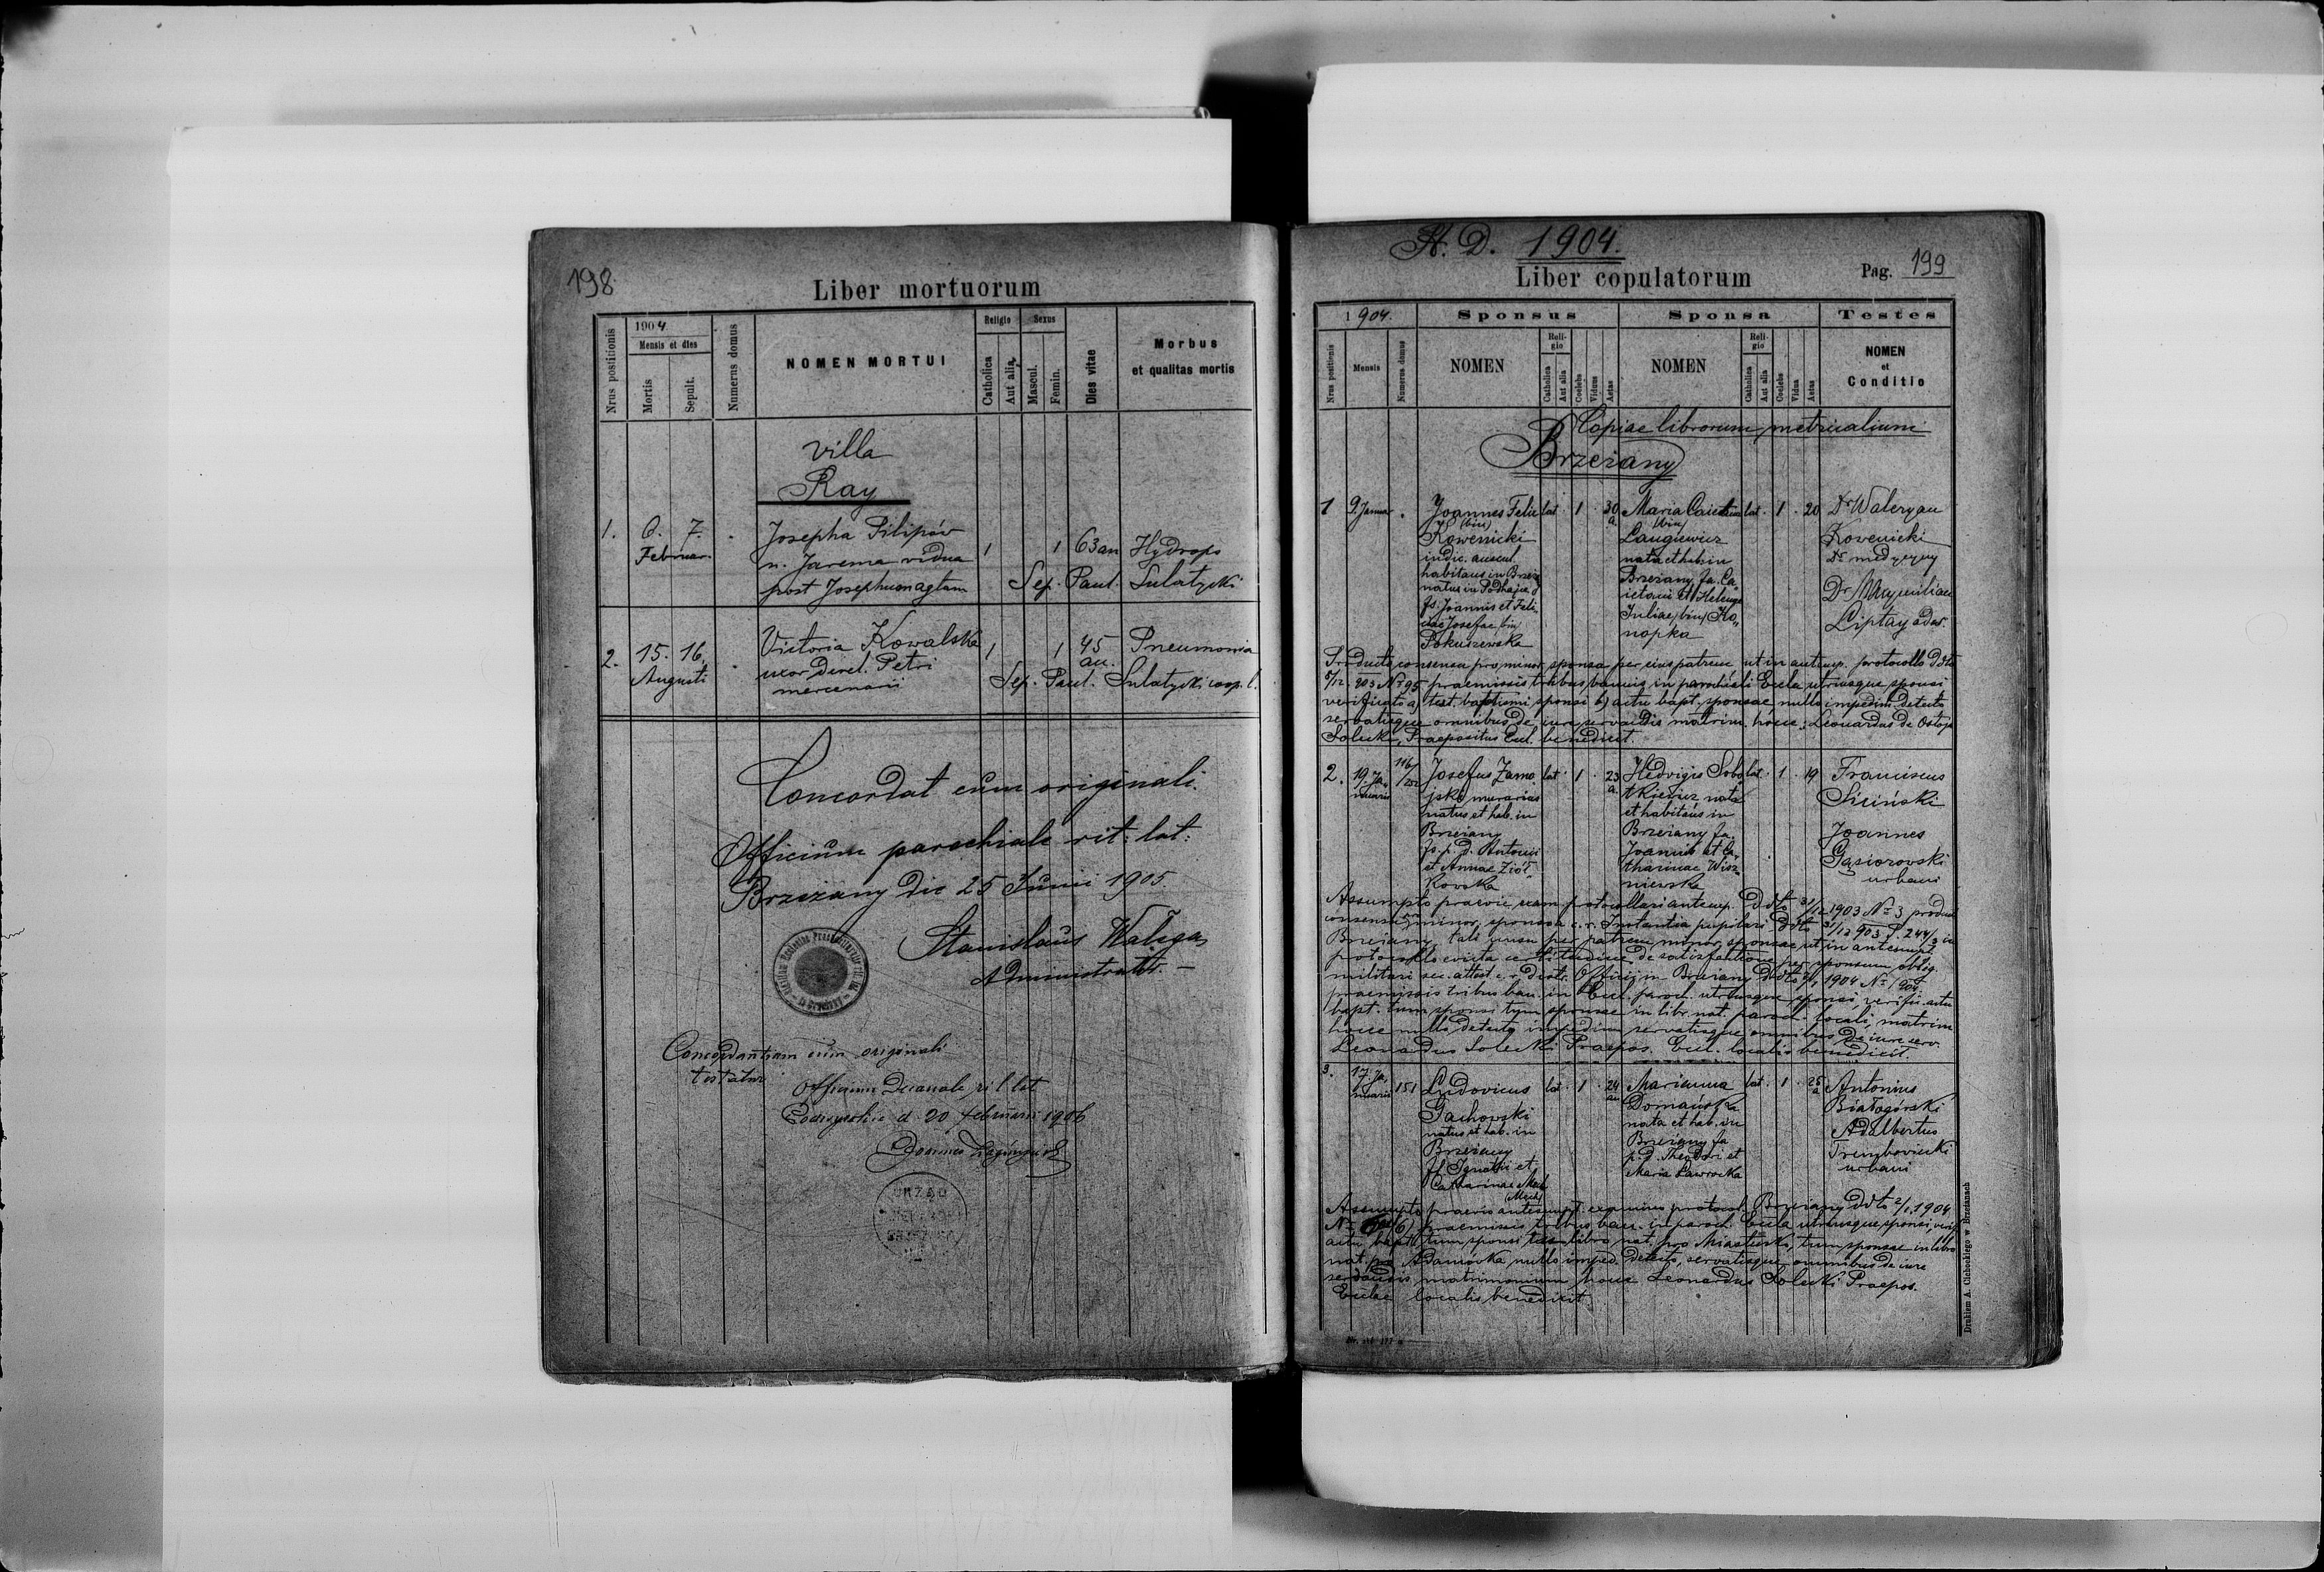 198
Liber mortuorum
Nrus postitionis
1904
Mensis et dies
Mortis
Sepult.
Numerus domus
NOMEN MORTUI
Religio
Catholica
Aut alia
Sexus
Mascul.
Femin.
Dies vitae
Morbus
et qualitas mortis
Villa
Ray
1. 6. 7. Josepha Pilipów 1 1 63 an Hydrops
Februar. n. Jarema vidua
post Josephum agtam Sep. Paul. Sulatycki
2. 15. 16. Victoria Kowalska 1 1 45 an. Pneumonia
Augusti uxor derel. Petri
mercenarii Sep. Paul. Sulatycki coop. l.
Concordat cum originali.
Officium parochiale rit: lat:
Brzezany die 25 Junii 1905.
Stanislaus Wałęga
Administrator. —
Concordantiam cum originali
testatur
Officium Decanale rit lat
d. 20 februarii 1906
Joannes
URZĄD
A. D. 1904.
Liber copulatorum
Pag. 199
1904.
Nrus positionis
Mensis
Numerus domus
Sponsus
NOMEN
Religio
Catholica
Aut alia
Coelebs
Viduus
Aetas
Sponsa
NOMEN
Religio
Catholica
Aut alia
Coelebs
Vidua
Aetas
Testes
NOMEN
et
Conditio
Copiae librorum metricalium
Brzeżany
1 9. Januar.
Joannes Felix
(bin)
Kowenicki
iudic. auscul.
habitans in Brzeż.
natus in Podhajce
fs. Joannis et Feli-
ciae Josefae (bin)
Pokuszewska
lat. 1 30 a.
Maria Caietana
(bin)
Langiewicz
nata et hab. in
Brzeżany fa. Ca-
ietani et Helenae
Juliae (bin) Ko-
nopka
lat. 1 20
Dr Waleryan
Kowenicki
Dr medycyny
Dr Maxymilian
Liptay adw.
Producto consensu pro minor. sponsa per eius patrem ut in antecop. protocollo ddto
5/12. 903 No 95 praemissis tribus bannis in parochiali Eccla utriusque sponsi
verificato a) test. baptismi sponsi b) actu bapt. sponsae, nullo impedim. detecto
servatisque omnibus de iure servandis matrim. hocce: Leonardus de Ostoja
Solecki, Praepositus Eccl. benedixit.
2. 19. Januarii
Josefus Zamojski murarius
natus et hab. in
Brzeżany
fs. p. d. Antonii
et Annae Ziół-
kowska
lat. 1 23 a.
Hedvigis Sobo-
tkiewicz nata
et habitans in
Brzeżany fa.
Joannis et Ca-
tharinae Wisz-
niewska
lat. 1 19
Franciscus
Siciński
Joannes
Gąsiorovski
urbani
Assumpto praevie exam. protocollari antecop. Ddto 31/12 1903 No 3 product.
consensu minor. sponsae c. r. Instantia pupilari Ddto 31/12 903 P. 244/3 in
Brzeżany,
militari sec. attest. c. r. Distr. Officii in Brzeżany
praemissis tribus ban. in Eccl. paroch. utriusque sponsi, verific. actu
bapt. tum sponsi tum sponsae in libr. nat. paroch. locali, matrim
hocce nullo detecto impedim. servatisque omnibus de iure serv.
Leonardus Solecki Praepos. Eccl. localis benedixit.
3. 17. Januarii 151
Ludovicus
Gachowski
natus et hab. in
Brzeżany
fs. Ignatii et
Catharinae Mech
(Mech)
lat. 1 24 an
Marianna
Domańska
nata et hab. in
Brzeżany fa.
p. d. Theodori et
Maria Lawrocka
lat. 1 25 a
Antonius
Białogórski
Adalbertus
Trembowiecki
urbani
Assumpto praevio antecopt. examine protocol. Brzeżany ddto 2/1 1904
praemissis tribus ban. in paroch. Eccla utriusque sponsi, verif
actu bapt. tum sponsi libro nat. pro Miasteczko, tum sponsae in libro
nat. pro Adamówka nullo imped. detecto, servatisque omnibus de iure
servandis matrimonium hocce Leonardus Solecki Praepos.
Ecclae localis benedixit
Drukiem A. Cichockiego w Brzeżanach